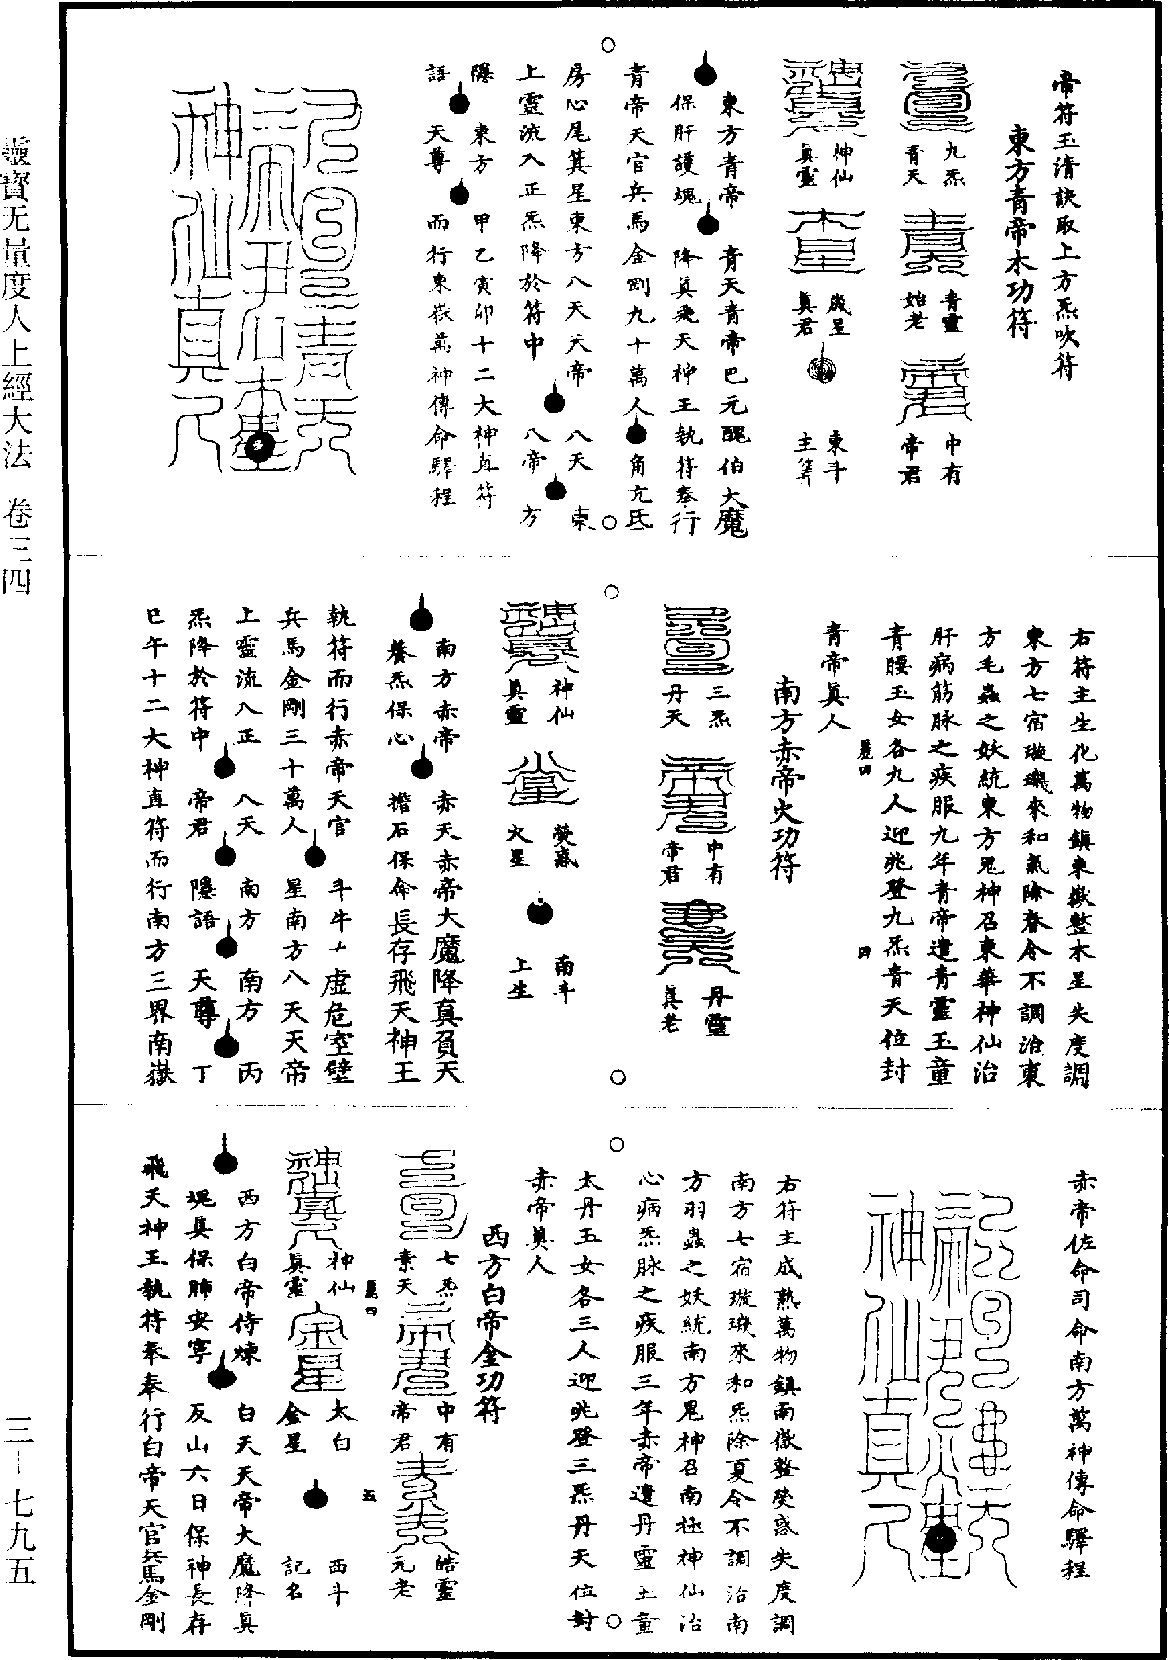 帝符玉清訣取上方炁吹符
東方青帝木功符
九炁青天
青靈始老
中有帝君
神仙真靈
歲星真君
東斗主筭
東方青帝 青天青帝巴元醜伯大魔
保肝護魂 降真飛天神王執符奉行
青帝天官兵馬金剛九十萬人 角亢氐
房心尾箕星東方八天天帝 八天 東
上靈流入正炁降於符中 八帝 方
隱 東方 甲乙寅卯十二大神直符
語 天尊 而行東嶽萬神傳命驛程
右符主生化萬物鎮東嶽整木星失度調
東方七宿璇璣來和氣除春令不調治東
方毛蟲之妖統東方鬼神召東華神仙治
肝病筋脉之疾服九年青帝遣青靈玉童
青腰玉女各九人迎兆登九炁青天位封
青帝真人
南方赤帝火功符
三炁丹天
中有帝君
丹靈真老
神仙真靈
熒惑火星
南斗上生
南方赤帝 赤天赤帝大魔降真負天
養炁保心 擔石保命長存飛天神王
執符而行赤帝天官 斗牛女虛危室壁
兵馬金剛三十萬人 星南方八天天帝
上靈流入正 八天 南方 南方 丙
炁降於符中 帝君 隱語 天尊 丁
巳午十二大神直符而行南方三界南嶽
赤帝佐命司命南方萬神傳命驛程
右符主成熟萬物鎮南嶽整熒惑失度調
南方七宿璇璣來和炁除夏令不調治南
方羽蟲之妖統南方鬼神召南極神仙治
心病炁脉之疾服三年赤帝遣丹靈玉童
太丹玉女各三人迎兆登三炁丹天位封
赤帝真人
西方白帝金功符
七炁素天
中有帝君
皓靈元老
神仙真靈
太白金星
西斗記名
西方白帝侍煉 白天天帝大魔降真
魄真保肺安寧 反山六日保神長存
飛天神王執符奉奉行白帝天官兵馬金剛
靈寶无量度人上經大法 卷三四
三—七九五